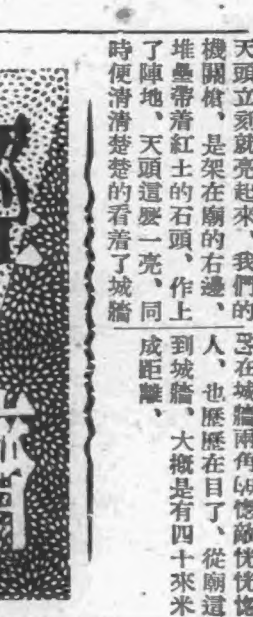 天頭立刻就亮起來、我們的
機關槍、是架在廟的右邊、
堆壘帶着紅土的石頭、作上
了陣地、天頭這麼一亮、同
時便清清楚楚的看着了城牆
在城牆兩角
人、也歷歷在目了、從廟這
到城牆、大概是有四十來米
成距離、